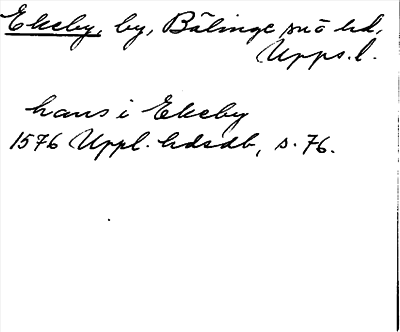 Ekeby, by, Bälinge sn o hd,
Upps. l.
hans i Ekeby
1576 Uppl. hdsdb, s. 76.